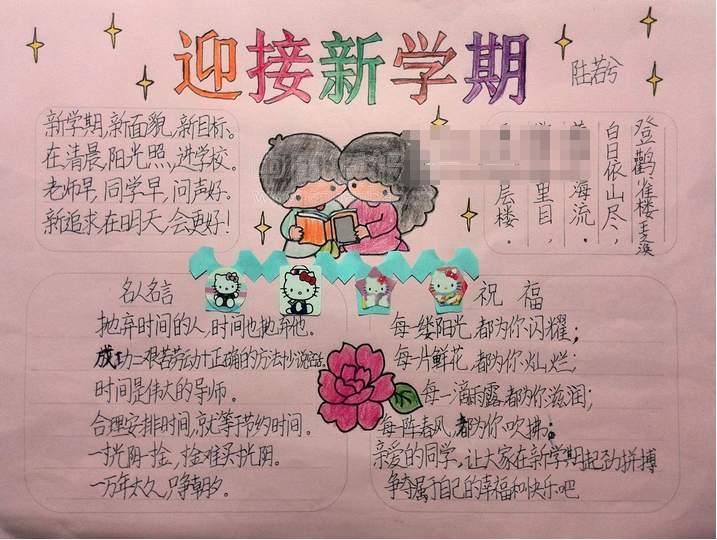 迎接新学期
陆若兮
新学期,新面貌,新目标。
在清晨,阳光照,进学校。
老师早,同学早,问声好。
新追求,在明天,会更好!
登鹳雀楼 王之涣
白日依山尽,
海流。
里目,
层楼。
名人名言
抛弃时间的人,时间也抛弃他。
成功=艰苦劳动+正确的方法+少说空话。
时间是伟大的导师。
合理安排时间,就等于节约时间。
一寸光阴一寸金,寸金难买寸光阴。
一万年太久,只争朝夕。
祝福
每一缕阳光,都为你闪耀;
每一片鲜花,都为你灿烂;
每一滴雨露,都为你滋润;
每一阵春风,都为你吹拂;
亲爱的同学,让大家在新学期起劲拼搏
争夺属于自己的幸福和快乐吧